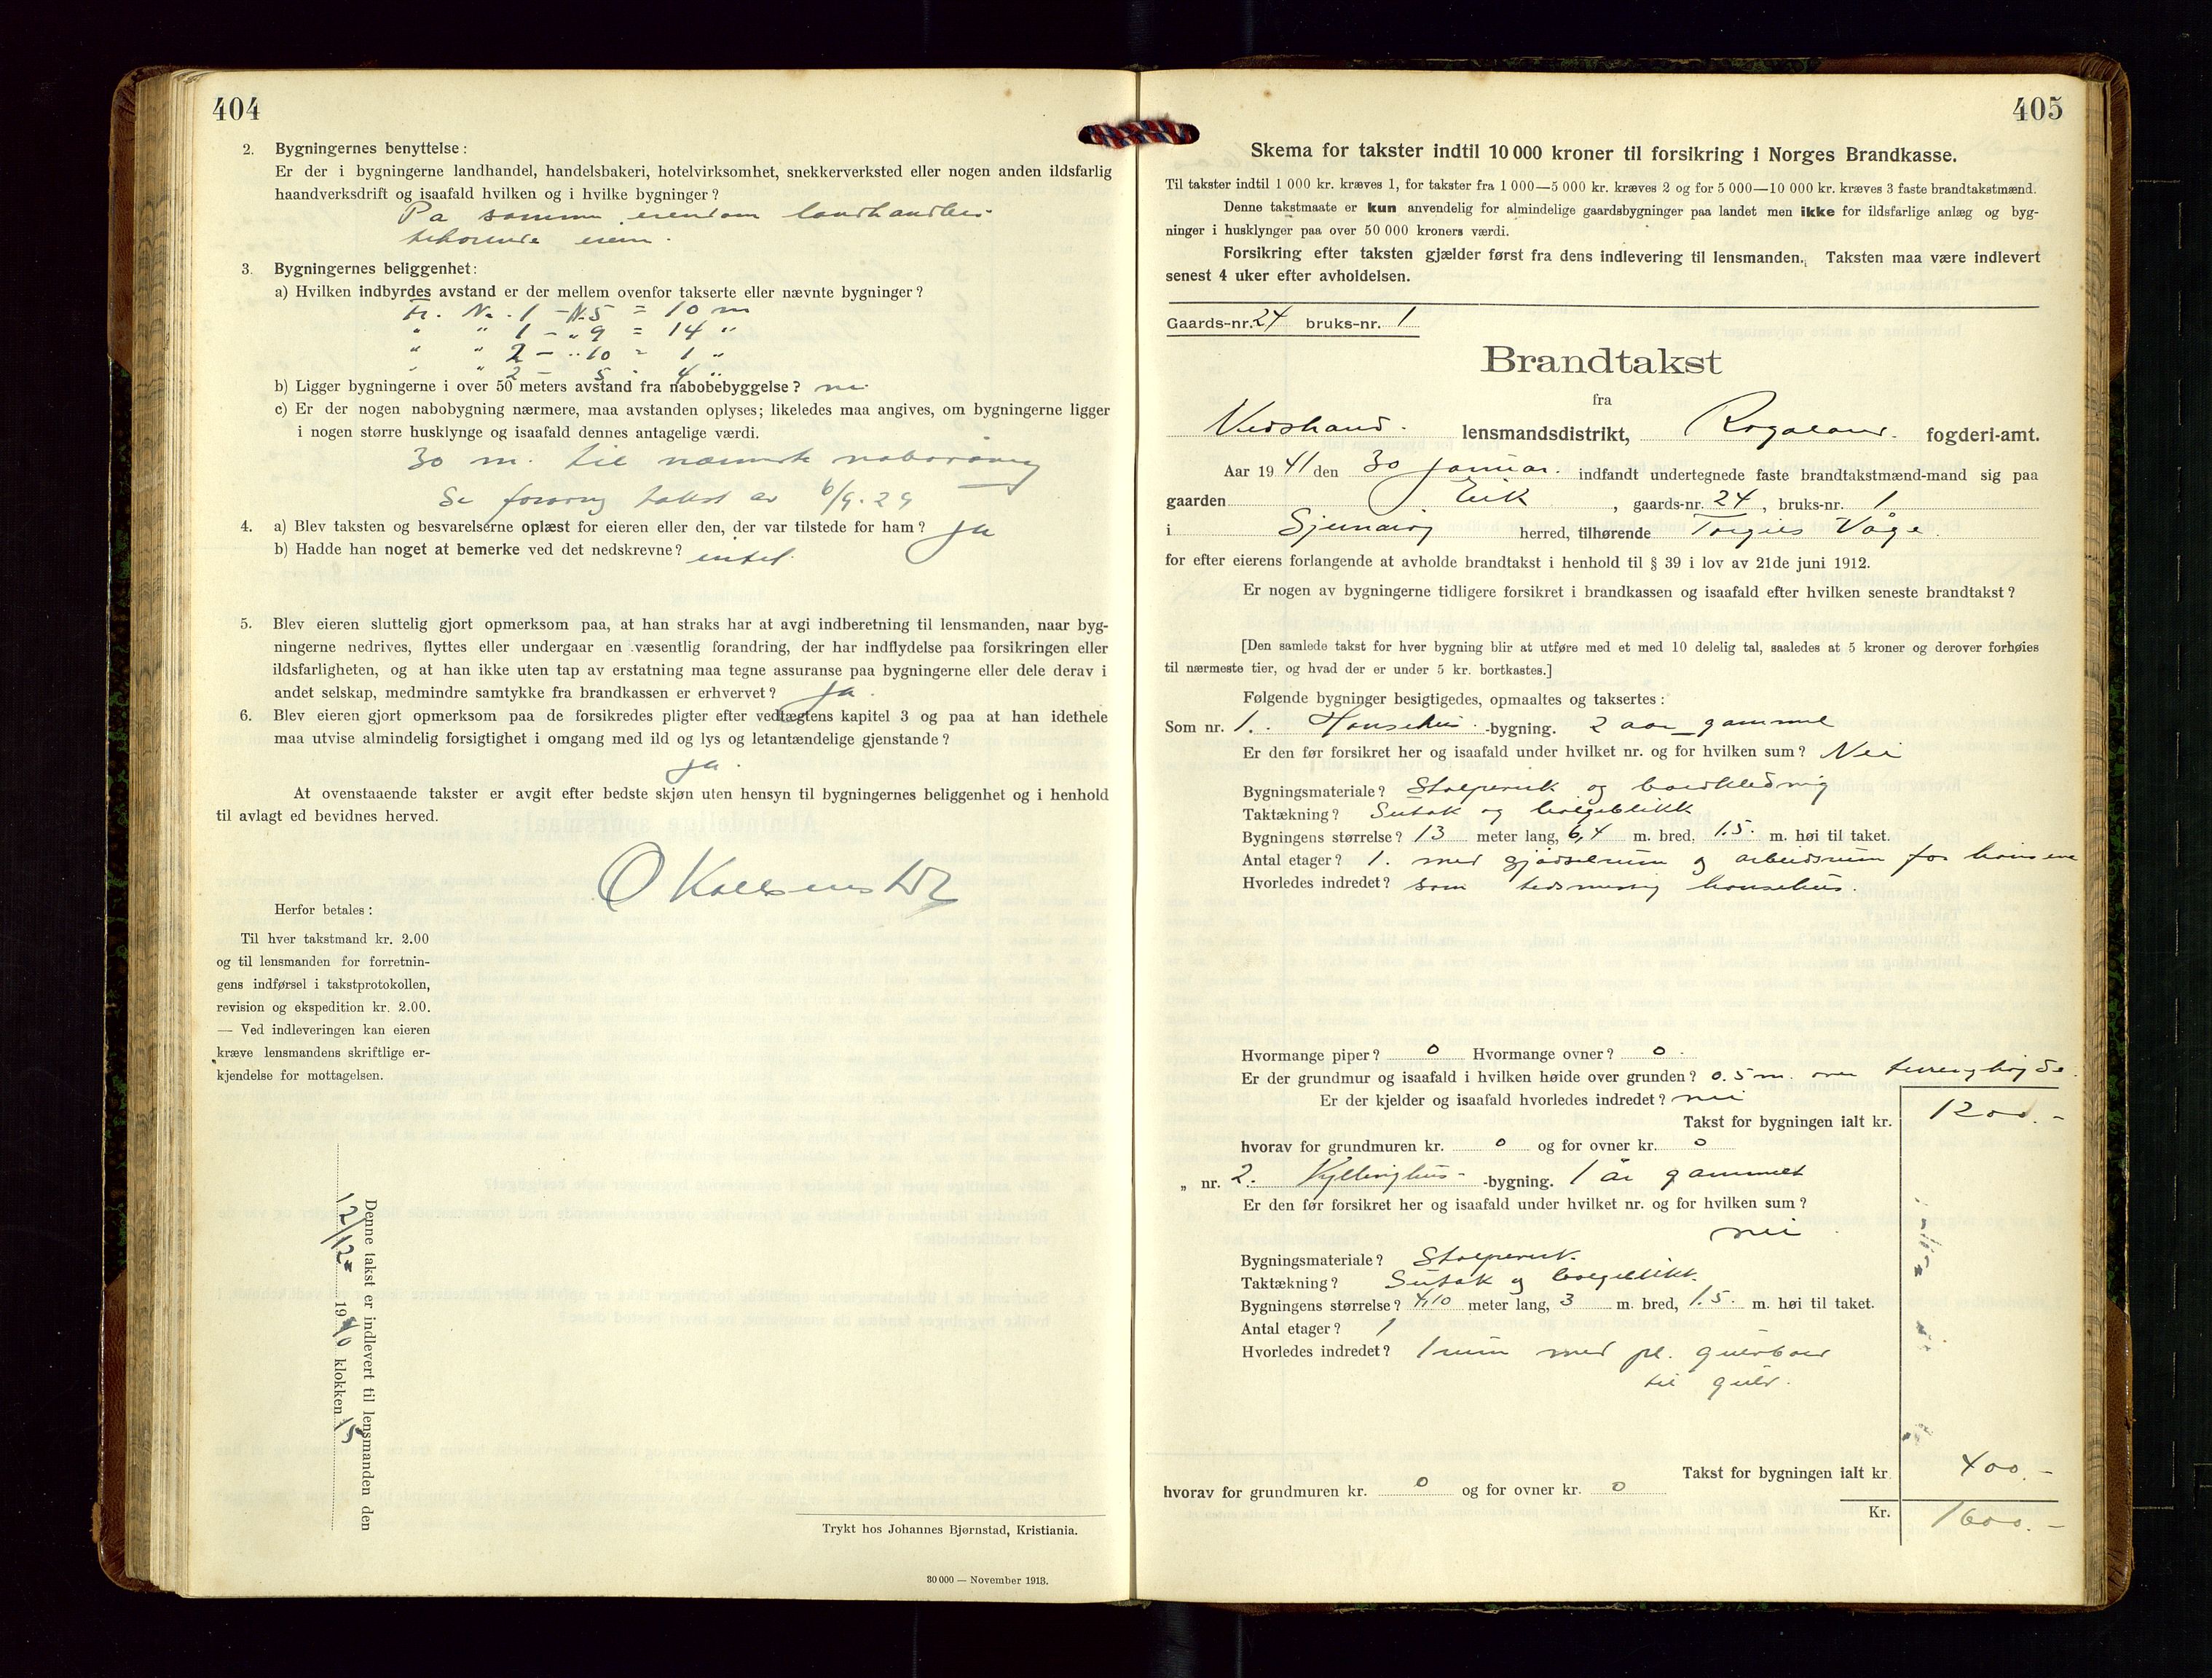 404
2. Bygningernes benyttelse:
Er der i bygningerne landhandel, handelsbakeri, hotelvirksomhet, snekkerverksted eller nogen anden ildsfarlig
haandverksdrift og isaafald hvilken og i hvilke bygninger?
På samme eiendom landhandleri
tilhorende eieren.
3. Bygningernes beliggenhet:
a) Hvilken indbyrdes avstand er der mellem ovenfor takserte eller nævnte bygninger?
Fr. Nr. 1 - N. 5 = 10 m
" " 1 - " 9 = 14 "
" " 2 - " 10 = 1 "
" " 2 - 5 - 4 "
b) Ligger bygningerne i over 50 meters avstand fra nabobebyggelse? nei
c) Er der nogen nabobygning nærmere, maa avstanden oplyses; likeledes maa angives, om bygningerne ligger
i nogen større husklynge og isaafald dennes antagelige værdi.
30 m. til nærmeste
Se forøvrig takst av 6/9. 29
4. a) Blev taksten og besvarelserne oplæst for eieren eller den, der var tilstede for ham? ja
b) Hadde han noget at bemerke ved det nedskrevne? intet.
5. Blev eieren sluttelig gjort opmerksom paa, at han straks har at avgi indberetning til lensmanden, naar byg-
ningerne nedrives, flyttes eller undergaar en væsentlig forandring, der har indflydelse paa forsikringen eller
ildsfarligheten, og at han ikke uten tap av erstatning maa tegne assuranse paa bygningerne eller dele derav i
andet selskap, medmindre samtykke fra brandkassen er erhvervet? ja.
6. Blev eieren gjort opmerksom paa de forsikredes pligter efter vedtægtens kapitel 3 og paa at han idethele
maa utvise almindelig forsigtighet i omgang med ild og lys og letantændelige gjenstande?
ja.
At ovenstaaende takster er avgit efter bedste skjøn uten hensyn til bygningernes beliggenhet og i henhold
til avlagt ed bevidnes herved.
Herfor betales:
Til hver takstmand kr. 2.00
og til lensmanden for forretnin-
gens indførsel i takstprotokollen,
revision og ekspedition kr. 2.00.
— Ved indleveringen kan eieren
kræve lensmandens skriftlige er-
kjendelse for mottagelsen.
Denne takst er indlevert til lensmanden den
12/12- 1940 klokken 15
Trykt hos Johannes Bjørnstad, Kristiania.
30 000 — November 1913.
405
Skema for takster indtil 10 000 kroner til forsikring i Norges Brandkasse.
Til takster indtil 1 000 kr. kræves 1, for takster fra 1 000—5 000 kr. kræves 2 og for 5 000—10 000 kr. kræves 3 faste brandtakstmænd.
Denne takstmaate er kun anvendelig for almindelige gaardsbygninger paa landet men ikke for ildsfarlige anlæg og byg-
ninger i husklynger paa over 50 000 kroners værdi.
Forsikring efter taksten gjælder først fra dens indlevering til lensmanden. Taksten maa være indlevert
senest 4 uker efter avholdelsen.
Gaards-nr. 24 bruks-nr. 1
Brandtakst
fra
Nedstrand. lensmandsdistrikt, Rogaland. fogderi-amt.
Aar 1941 den 30 januar. indfandt undertegnede faste brandtakstmænd-mand sig paa
gaarden Eik, gaards-nr. 24, bruks-nr. 1
i Sjernarøy herred, tilhørende Torgils Våge.
for efter eierens forlangende at avholde brandtakst i henhold til § 39 i lov av 21de juni 1912.
Er nogen av bygningerne tidligere forsikret i brandkassen og isaafald efter hvilken seneste brandtakst?
[Den samlede takst for hver bygning blir at utføre med et med 10 delelig tal, saaledes at 5 kroner og derover forhøies
til nærmeste tier, og hvad der er under 5 kr. bortkastes.]
Følgende bygninger besigtigedes, opmaaltes og taksertes:
Som nr. 1. Honsehus -bygning. 2 aar gammel
Er den før forsikret her og isaafald under hvilket nr. og for hvilken sum? Nei
Bygningsmateriale? Stolpverk og bordkledning
Taktækning? Sutak og bolgeblikk
Bygningens størrelse? 13 meter lang, 6,4 m. bred, 1.5 m. høi til taket.
Antal etager? 1. med gjødselrum og arbeidsrum for honsene
Hvorledes indredet? som honsehus.
Hvormange piper? 0 Hvormange ovner? 0
Er der grundmur og isaafald i hvilken høide over grunden? 0.5 m. over
Er der kjelder og isaafald hvorledes indredet? nei
Takst for bygningen ialt kr. 1200.-
hvorav for grundmuren kr. 0 og for ovner kr. 0
„ nr. 2. Kyllinghus -bygning. 1 år gammelt
Er den før forsikret her og isaafald under hvilket nr. og for hvilken sum?
nei
Bygningsmateriale? Stolpverk.
Taktækning? Sutak og bolgeblikk.
Bygningens størrelse? 4,10 meter lang, 3 m. bred, 1.5 m. høi til taket.
Antal etager? 1
Hvorledes indredet? 1 rum med pl. gulvbord
til gulv.
Takst for bygningen ialt kr. 400.-
hvorav for grundmuren kr. 0 og for ovner kr. 0
Kr. 1600.-